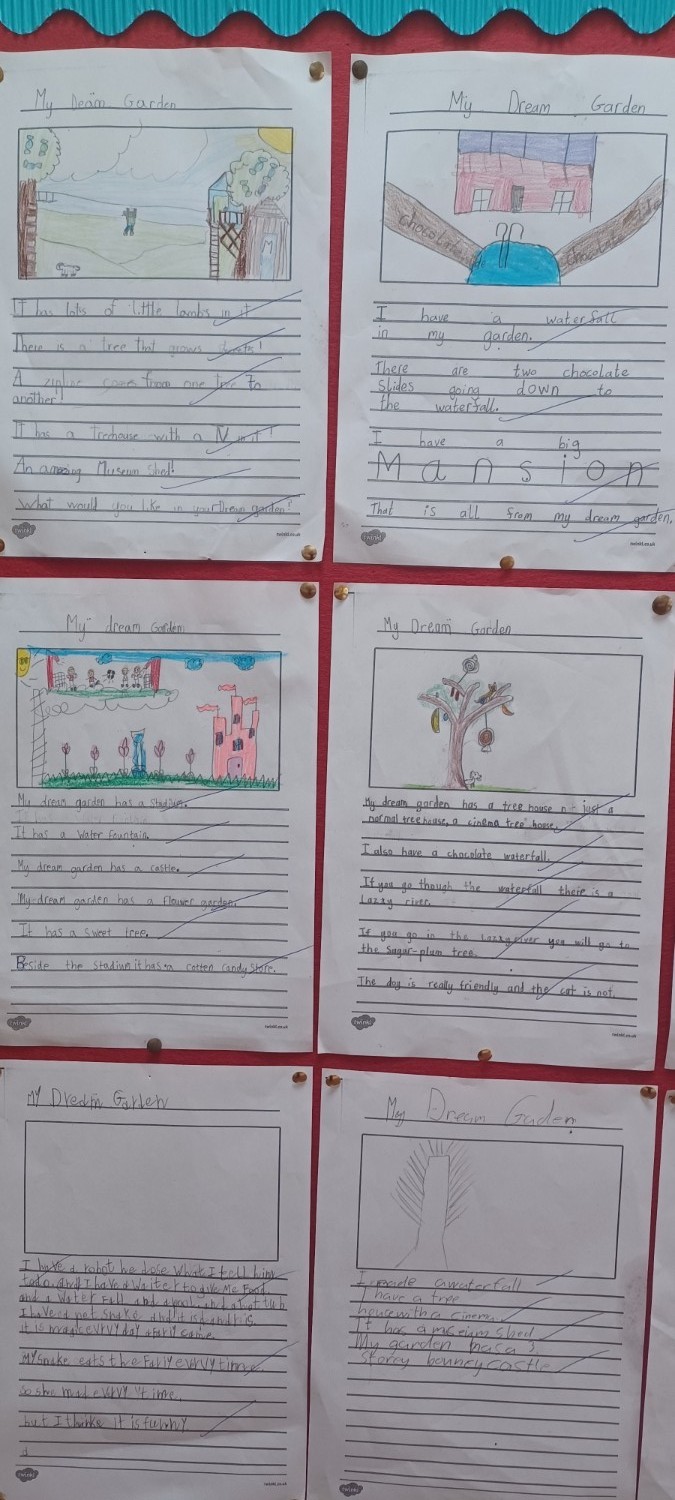 My Deam Garden
It has lots of little lambs in it
There is a tree that grows
A zipline comes from one tree to
another!
It has a Treehouse with a TV in it!
An amazing Museum Shed!
What would you like in your Dream garden?
twinkl
twinkl.co.uk
My Dream Garden
chocolate slide
chocolate
I have a waterfall
in my garden.
There are two chocolate
Slides going down to
the waterfall.
I have a big
Mansion
That is all from my dream garden.
twinkl
twinkl.co.uk
My dream Garden
My dream garden has a stadium.
It has a Water Fountain.
My dream garden has a castle.
My dream garden has a flower garden.
It has a sweet tree.
Beside the stadium it has a cotten candy store.
twinkl
twinkl.co.uk
My Dream Garden
My dream garden has a tree house n - just a
normal treehouse, a cinema tree house.
I also have a chocolate waterfall.
If you go though the waterfall there is a
Lazzy river.
If you go in the Lazzy river you will go to
the Sagur-plum tree.
The dog is really friendly and the cat is not.
twinkl
twinkl.co.uk
MY Dream Garten
I have a robot he dose what I tell him
todo. and I have a Waiter to give Me Food.
and a water Fall and a and a hot tub
I have a pet snake and it is
it is magic evrvy day a Fariy came
MY snake eats the Fariy evrvy time
so she evrvy time.
but I thinke it is funny
twinkl
twinkl.co.uk
My Dream Gaden
I made a waterfall
I have a tree
house with a cinema
It has a museum shed
My garden has a 3
storey bouncy castle
twinkl
twinkl.co.uk